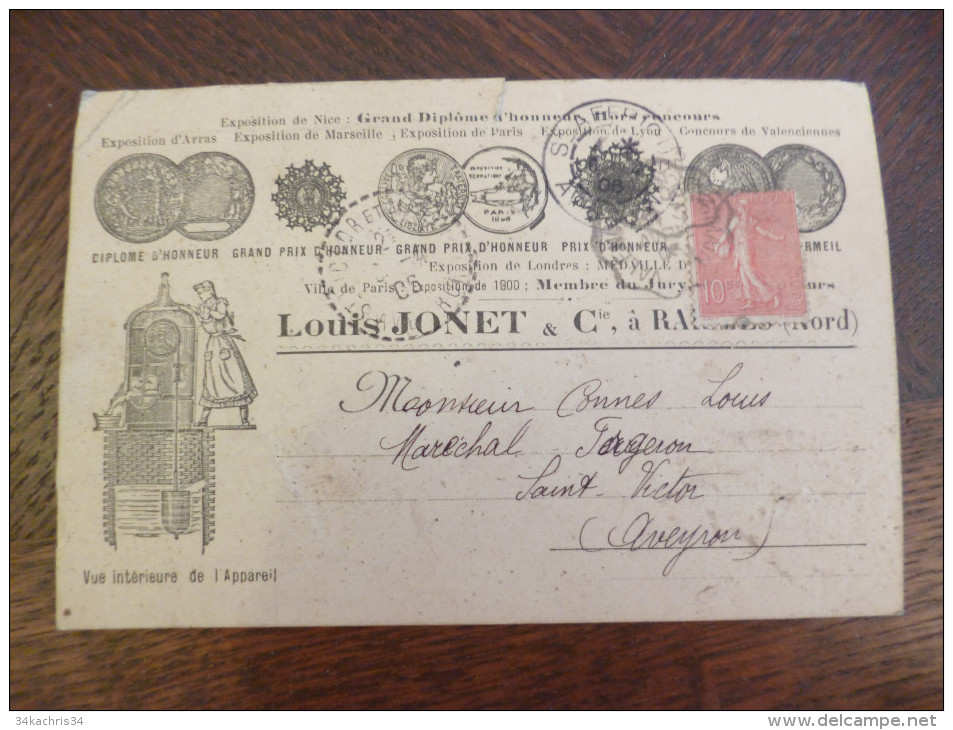 Exposition de Nice : Grand Diplôme d'honneur Hors concours
Exposition d'Arras Exposition de Marseille, Exposition de Paris Exposition de Lyon Concours de Valenciennes
PARIS
DIPLOME D'HONNEUR GRAND PRIX D'HONNEUR GRAND PRIX D'HONNEUR PRIX D'HONNEUR VERMEIL
Exposition de Londres : MÉDAILLE
Ville de Paris ; Exposition de 1900 ; Membre du Jury
Louis JONET & Cie, à (Nord)
10
06
Monsieur Connes Louis
Maréchal Forgeron
Saint-Victor
(Aveyron)
Vue intérieure de l'Appareil
34kachris34
www.delcampe.net